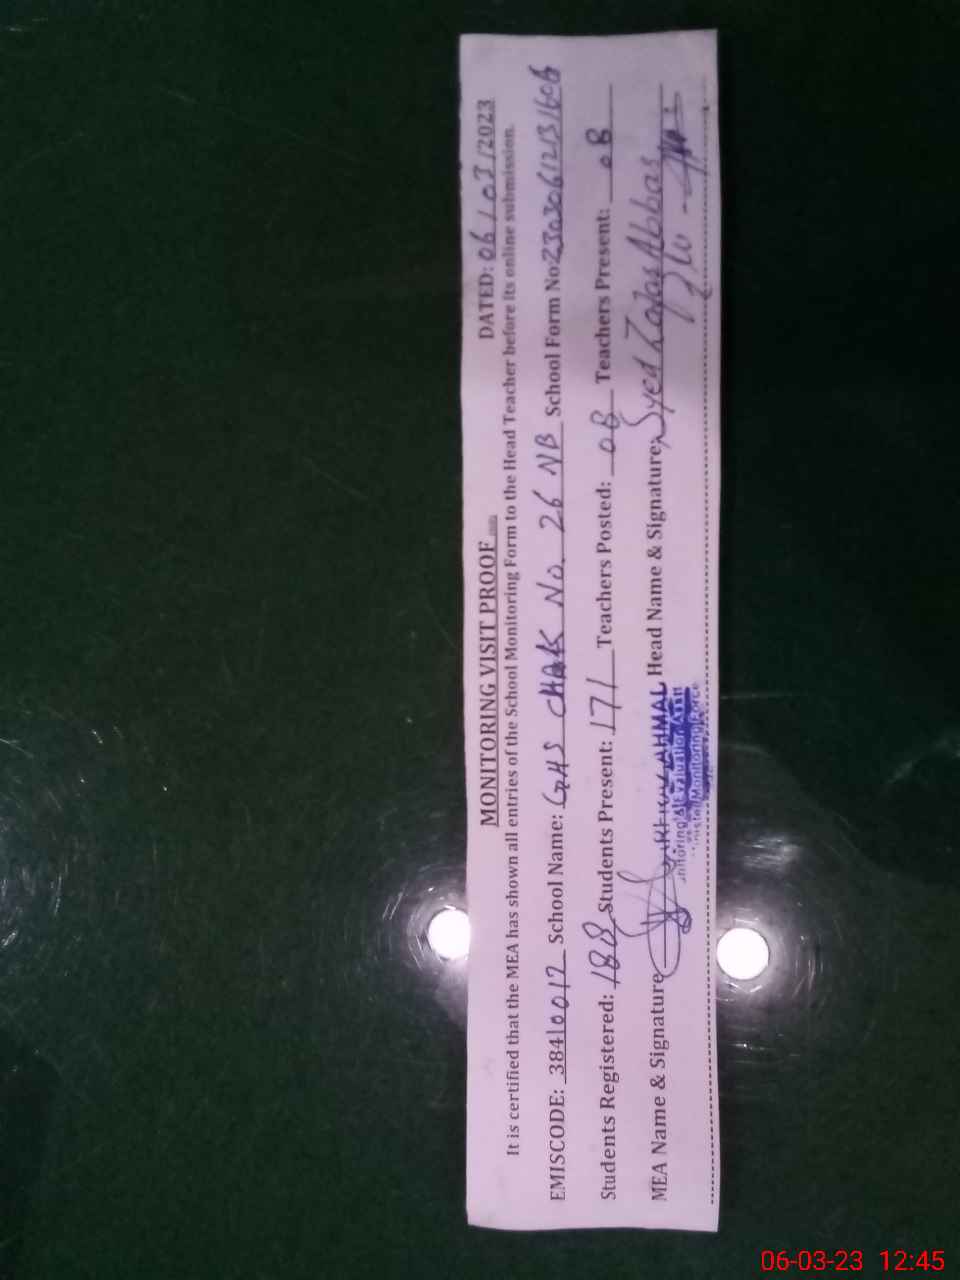 MONITORING VISIT PROOF DATED: 06/03/2023
It is certified that the MEA has shown all entries of the School Monitoring Form to the Head Teacher before its online submission.
EMISCODE: 38410017 School Name: GHS CHAK No. 26 NB School Form No: 23030612131606
Students Registered: 188 Students Present: 171 Teachers Posted: 08 Teachers Present: 08
MEA Name & Signature AHMAL Head Name & Signature: Syed Zafar Abbas
Monitoring Force
06-03-23 12:45